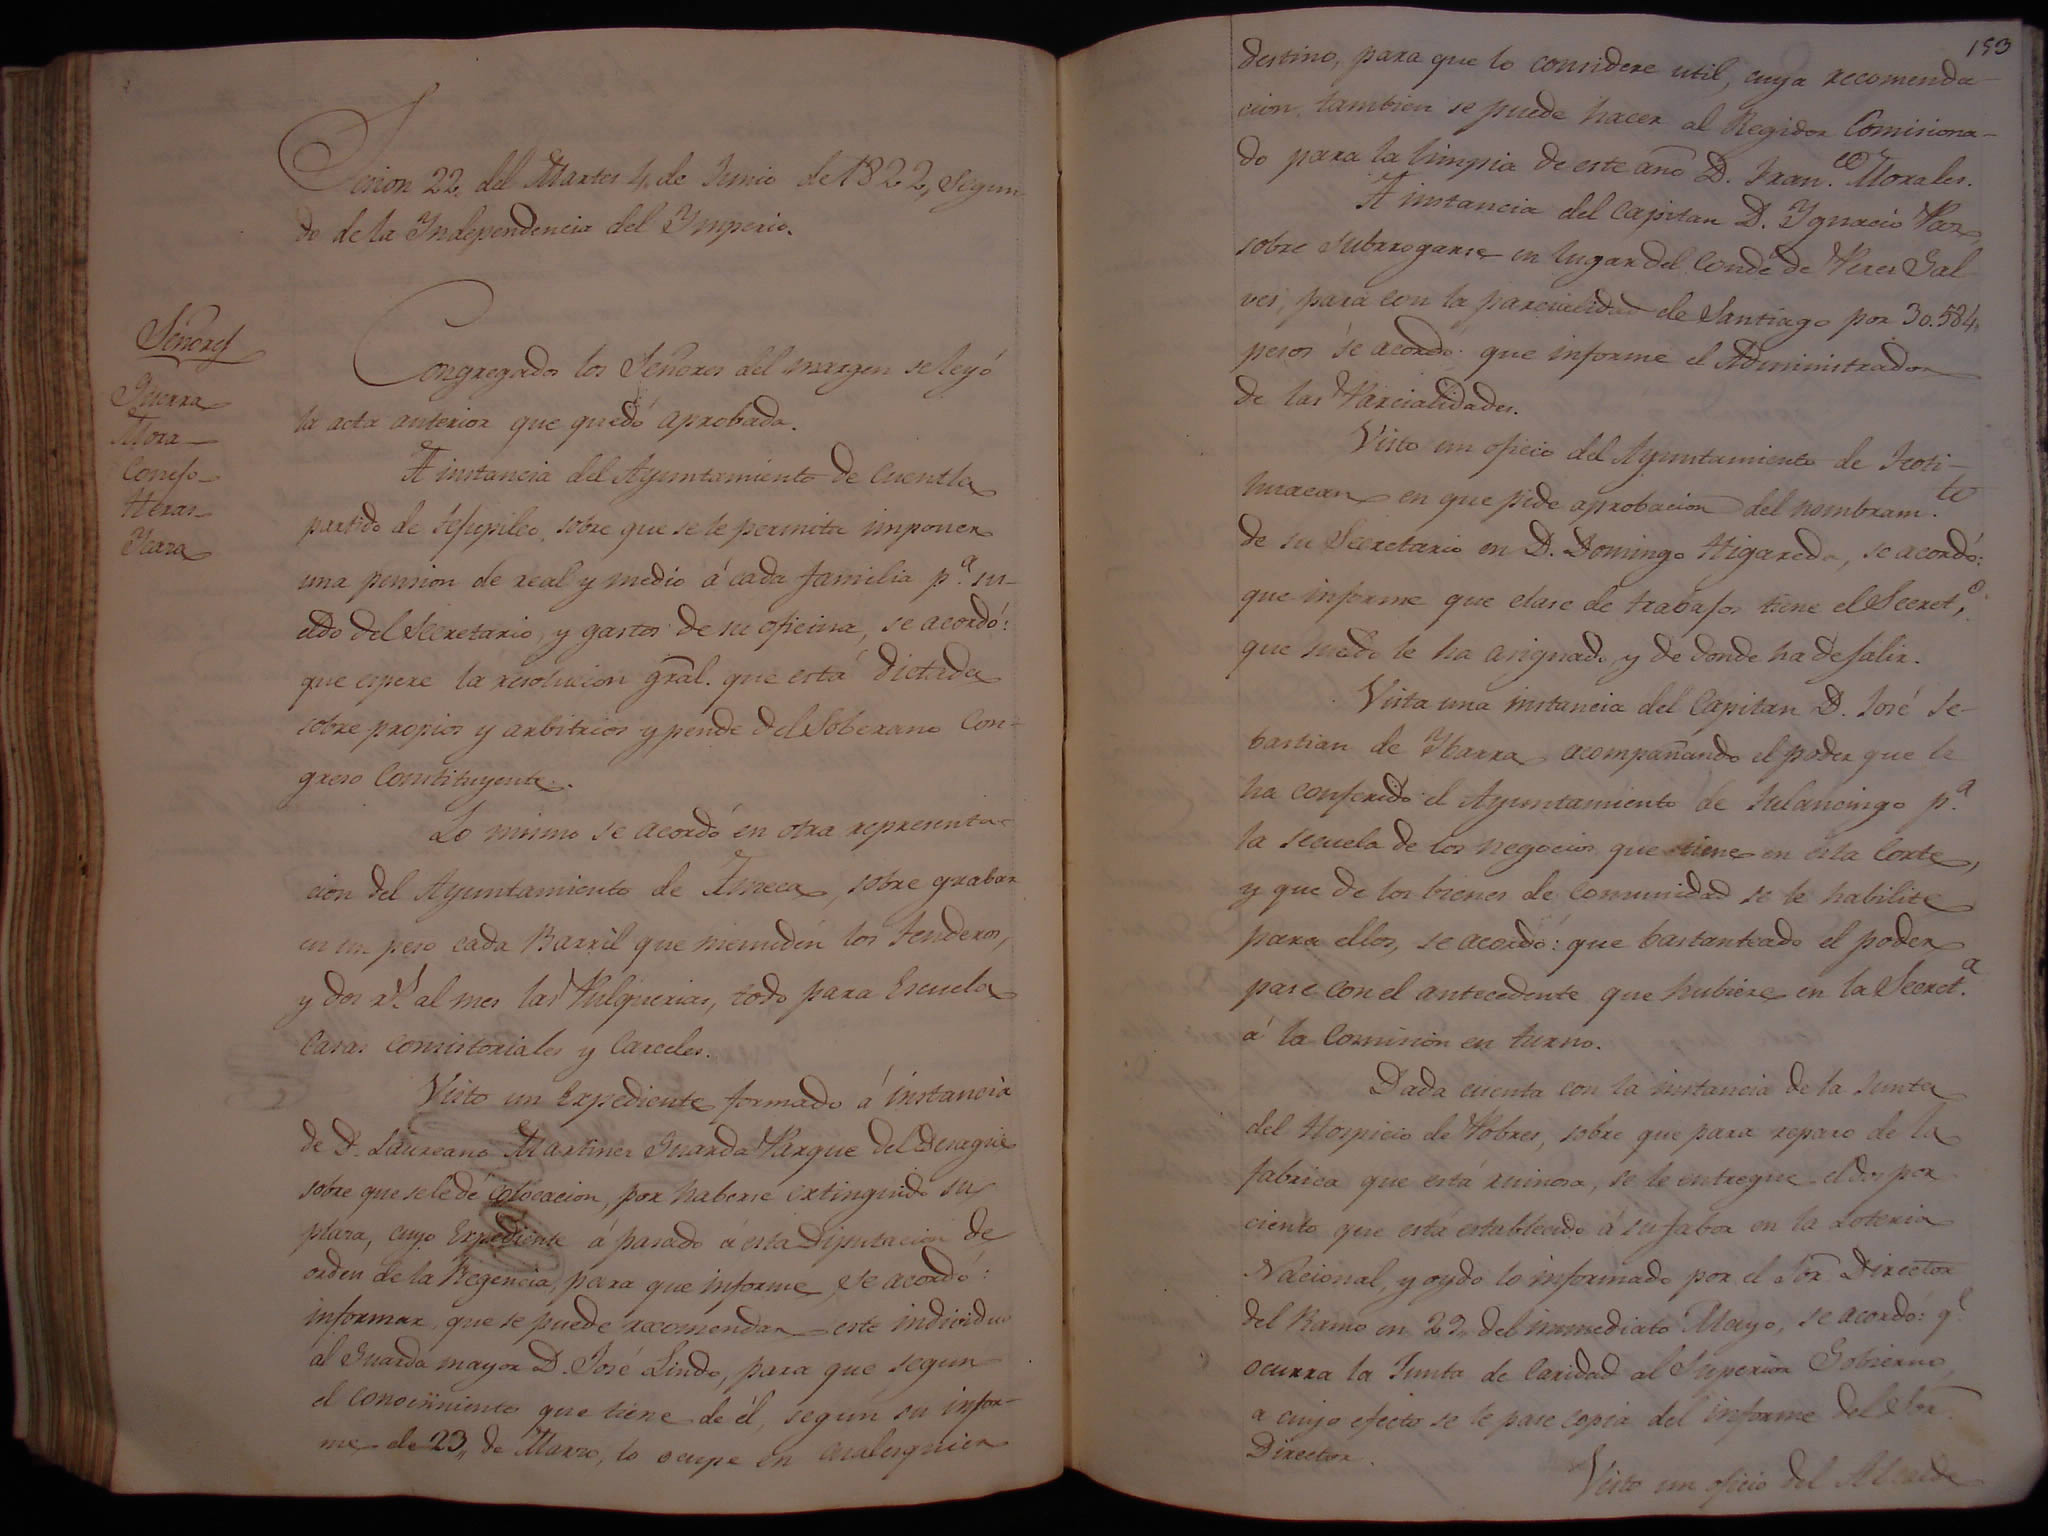 Sesion 22, del Martes 4, de Junio de 1822, segun-
do de la Independencia del Ymperio.
Señores
Guerra
Mora
Conejo
Heras
Ycaza
Congregados los Señores del margen se leyó
la acta anterior que quedó aprobada.
A instancia del Ayuntamiento de Cuentla
partido de sobre que se le permita imponer
una pension de real y medio á cada familia p.ª su-
eldo del Secretario, y gastos de su oficina, se acordó:
que espere la resolucion gral. que está dictada
sobre propios y arbitrios y pende del Soberano Con-
greso Constituyente.
Lo mismo se acordó en otra representa-
cion del Ayuntamiento de sobre grabar
en un peso cada Barril que menudén los tenderos,
y dos r.s al mes las Pulquerias, todo para Escuela
Casas Consistoriales y Carceles.
Visto un Expediente formado á instancia
de D. Laureano Martines Guarda Parque del Desague
sobre que se le dé colocacion, por haberse extinguido su
plaza, cuyo Expediente á pasado á esta Diputacion de
orden de la Regencia, para que informe, se acordó:
informar, que se puede recomendar este individuo
al Guarda mayor D. José Lindo, para que segun
el conocimiento que tiene de él, segun su infor-
me de 23, de Marzo, lo ocupe en cualesquier
193
destino, para que lo considere util, cuya recomenda-
cion, tambien se puede hacer al Regidor Comisiona-
do para la limpia de este año D. Fran.co Morales.
A instancia del Capitan D. Ygnacio Paz,
sobre subrrogarse en lugar del Conde de Peres Gal-
ves, para con la parcialidad de Santiago por 30.584,
pesos se acordó: que informe el Administrador
de las Parcialidades.
Visto un oficio del Ayuntamiento de Teoti-
huacan en que pide aprobacion del nombram.to
de su Secretario en D. Domingo Higareda, se acordó:
que informe que clase de trabajos tiene el Secret.o,
que sueldo le ha asignado, y de donde ha de salir.
Vista una instancia del Capitan D. José Se-
bastian de Ybarra acompañando el poder que le
ha conferido el Ayuntamiento de Tulancingo p.ª
la secuela de los negocios que tiene en esta Corte,
y que de los bienes de comunidad se le habilite
para ellos, se acordó: que bastanteado el poder
pase con el antecedente que hubiere en la Secret.ª
á la Comision en turno.
Dada cuenta con la instancia de la Junta
del Hospicio de Pobres, sobre que para reparo de la
fabrica que está ruinosa, se le entregue el dos por
ciento que está establecido á su fabor en la Loteria
Nacional, y oydo lo informado por el Sor Director
del Ramo en 29, del inmediato Mayo, se acordó: q.e
ocurra la Junta de Caridad al Superior Gobierno,
a cuyo efecto se le pase copia del informe del Sor
Director.
Visto un oficio del Alcalde